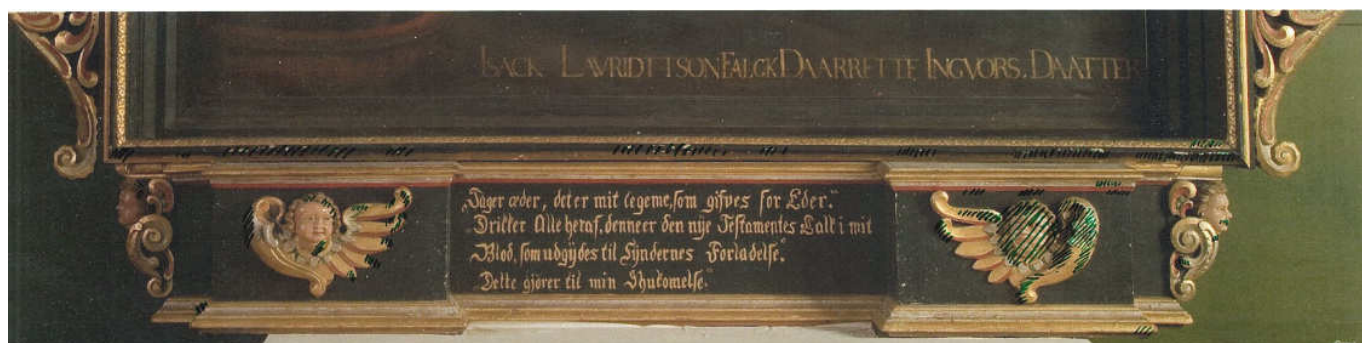 ISACK LAVRIDTTSON FALCK DAARRETTE INGVORS. DAATTER
„Tager æder, det er mit legeme, som gifves for Eder.“
„Drikker Alle heraf, denne er den nye Testamentes Kalk i mit
Blod, som udgydes til Syndernes Forladelse.“
„Dette gjører til min Ihukomelse.“